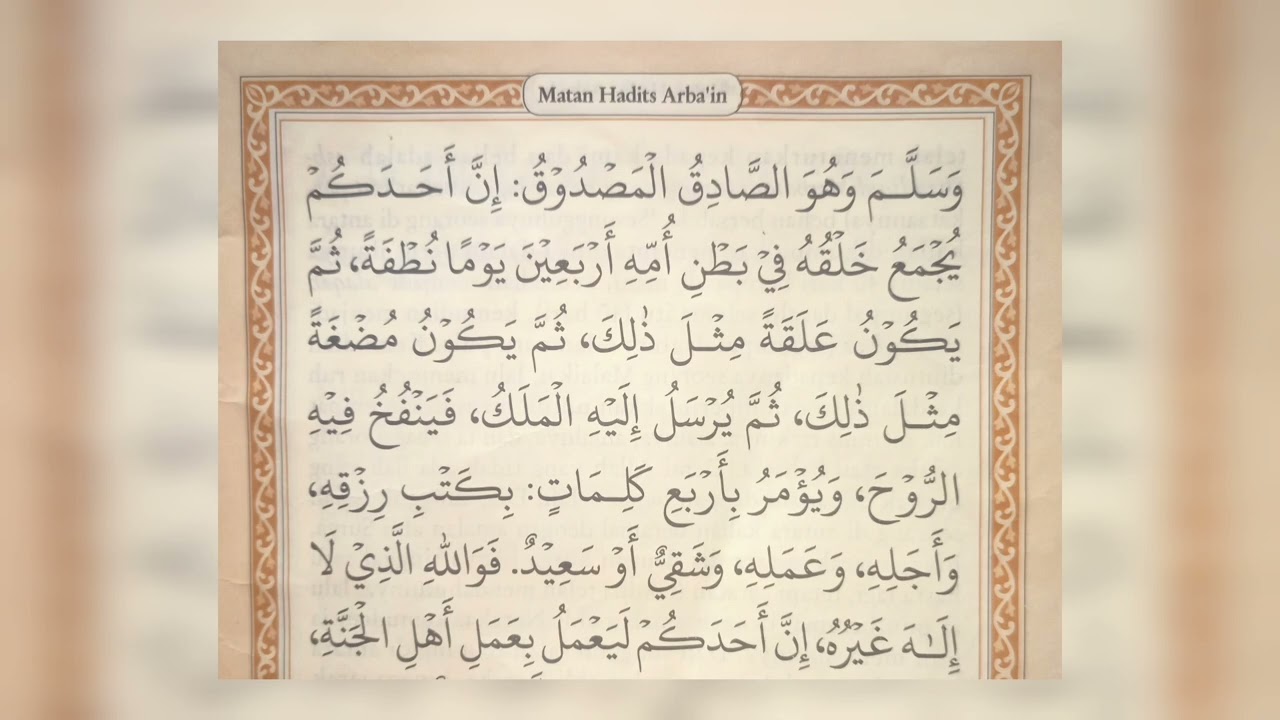 Matan Hadits Arba'in
وَسَلَّـمَ وَهُوَ الصَّادِقُ الْمَصْدُوْقُ: إِنَّ أَحَـدَكُـمْ
يُجْمَعُ خَلْقُهُ فِيْ بَـطْنِ أُمِّهِ أَرْبَعِيْنَ يَوْمًا نُطْفَةً، ثُمَّ
يَـكُـوْنُ عَـلَقَةً مِثْـلَ ذٰلِكَ، ثُمَّ يَـكُـوْنُ مُضْغَةً
مِثْـلَ ذٰلِكَ، ثُمَّ يُرْسَلُ إِلَيْهِ الْمَلَكُ، فَيَنْفُخُ فِيْهِ
الرُّوْحَ، وَيُؤْمَرُ بِأَرْبَعِ كَلِـمَاتٍ: بِكَتْبِ رِزْقِهِ،
وَأَجَلِهِ، وَعَمَلِهِ، وَشَقِيٌّ أَوْ سَعِيْدٌ. فَوَاللهِ الَّذِيْ لَا
إِلَـٰهَ غَيْرُهُ، إِنَّ أَحَدَكُمْ لَيَعْمَلُ بِعَمَلِ أَهْلِ الْجَنَّةِ،